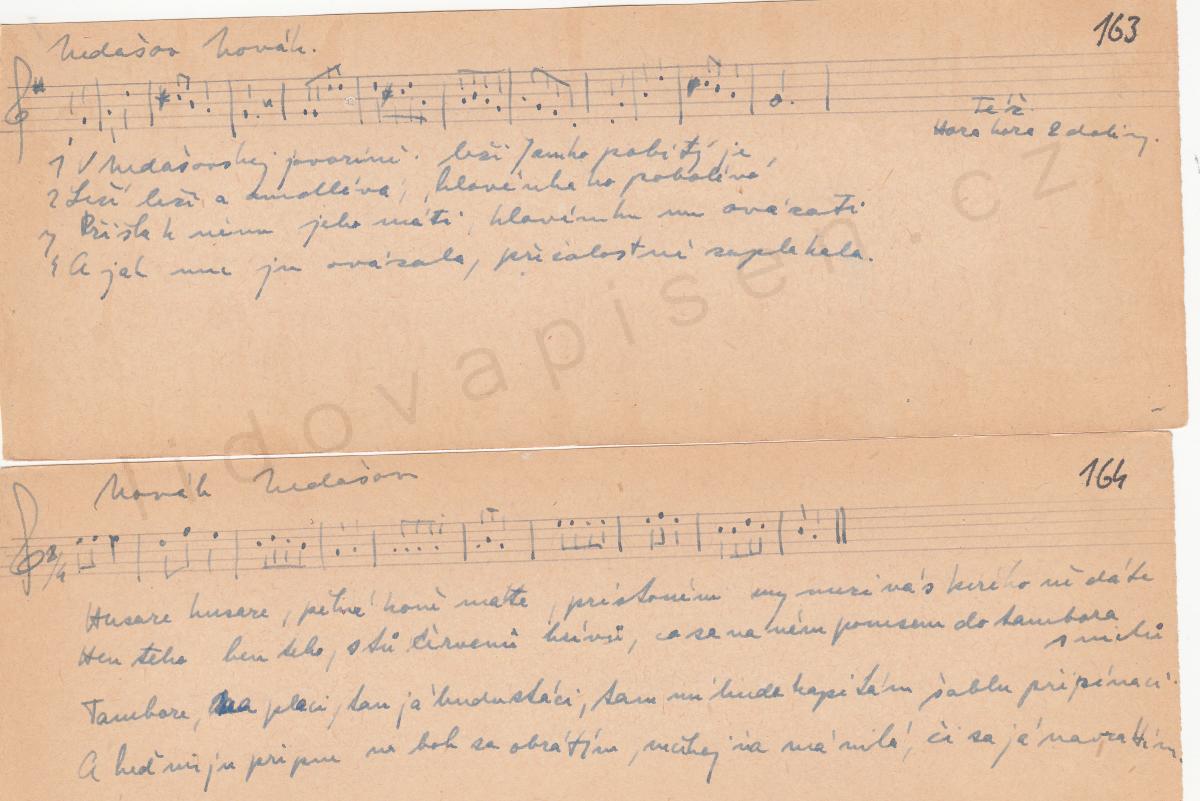 Nedašov Novák.
163
Též.
Hora hora 2 doliny.
1 V Nedašovskej javorině. leží Janko pobitý je
2 Leží leží a umdlívá, hlavěnka ho pobolívá
Přišla k němu jeho máti, hlavěnku mu ovázati
4 A jak mu ju ovázala, přežalostně zaplakala.
lidovapisen.cz
Novák Nedašov
164
3/4
Husare husare, pěkné koně máte, přistoném my mezi vás kerého ně dáte
Hen teho hen teho, s tú červenú hrívú, co sa na něm ponesem do tambora
s milú
Tambore, na placi, tam já budu stáci, tam mi bude kapitám šablu pripínaci.
A keď mi ju pripne na bok sa obrátím, má milá, či sa já navrátím.